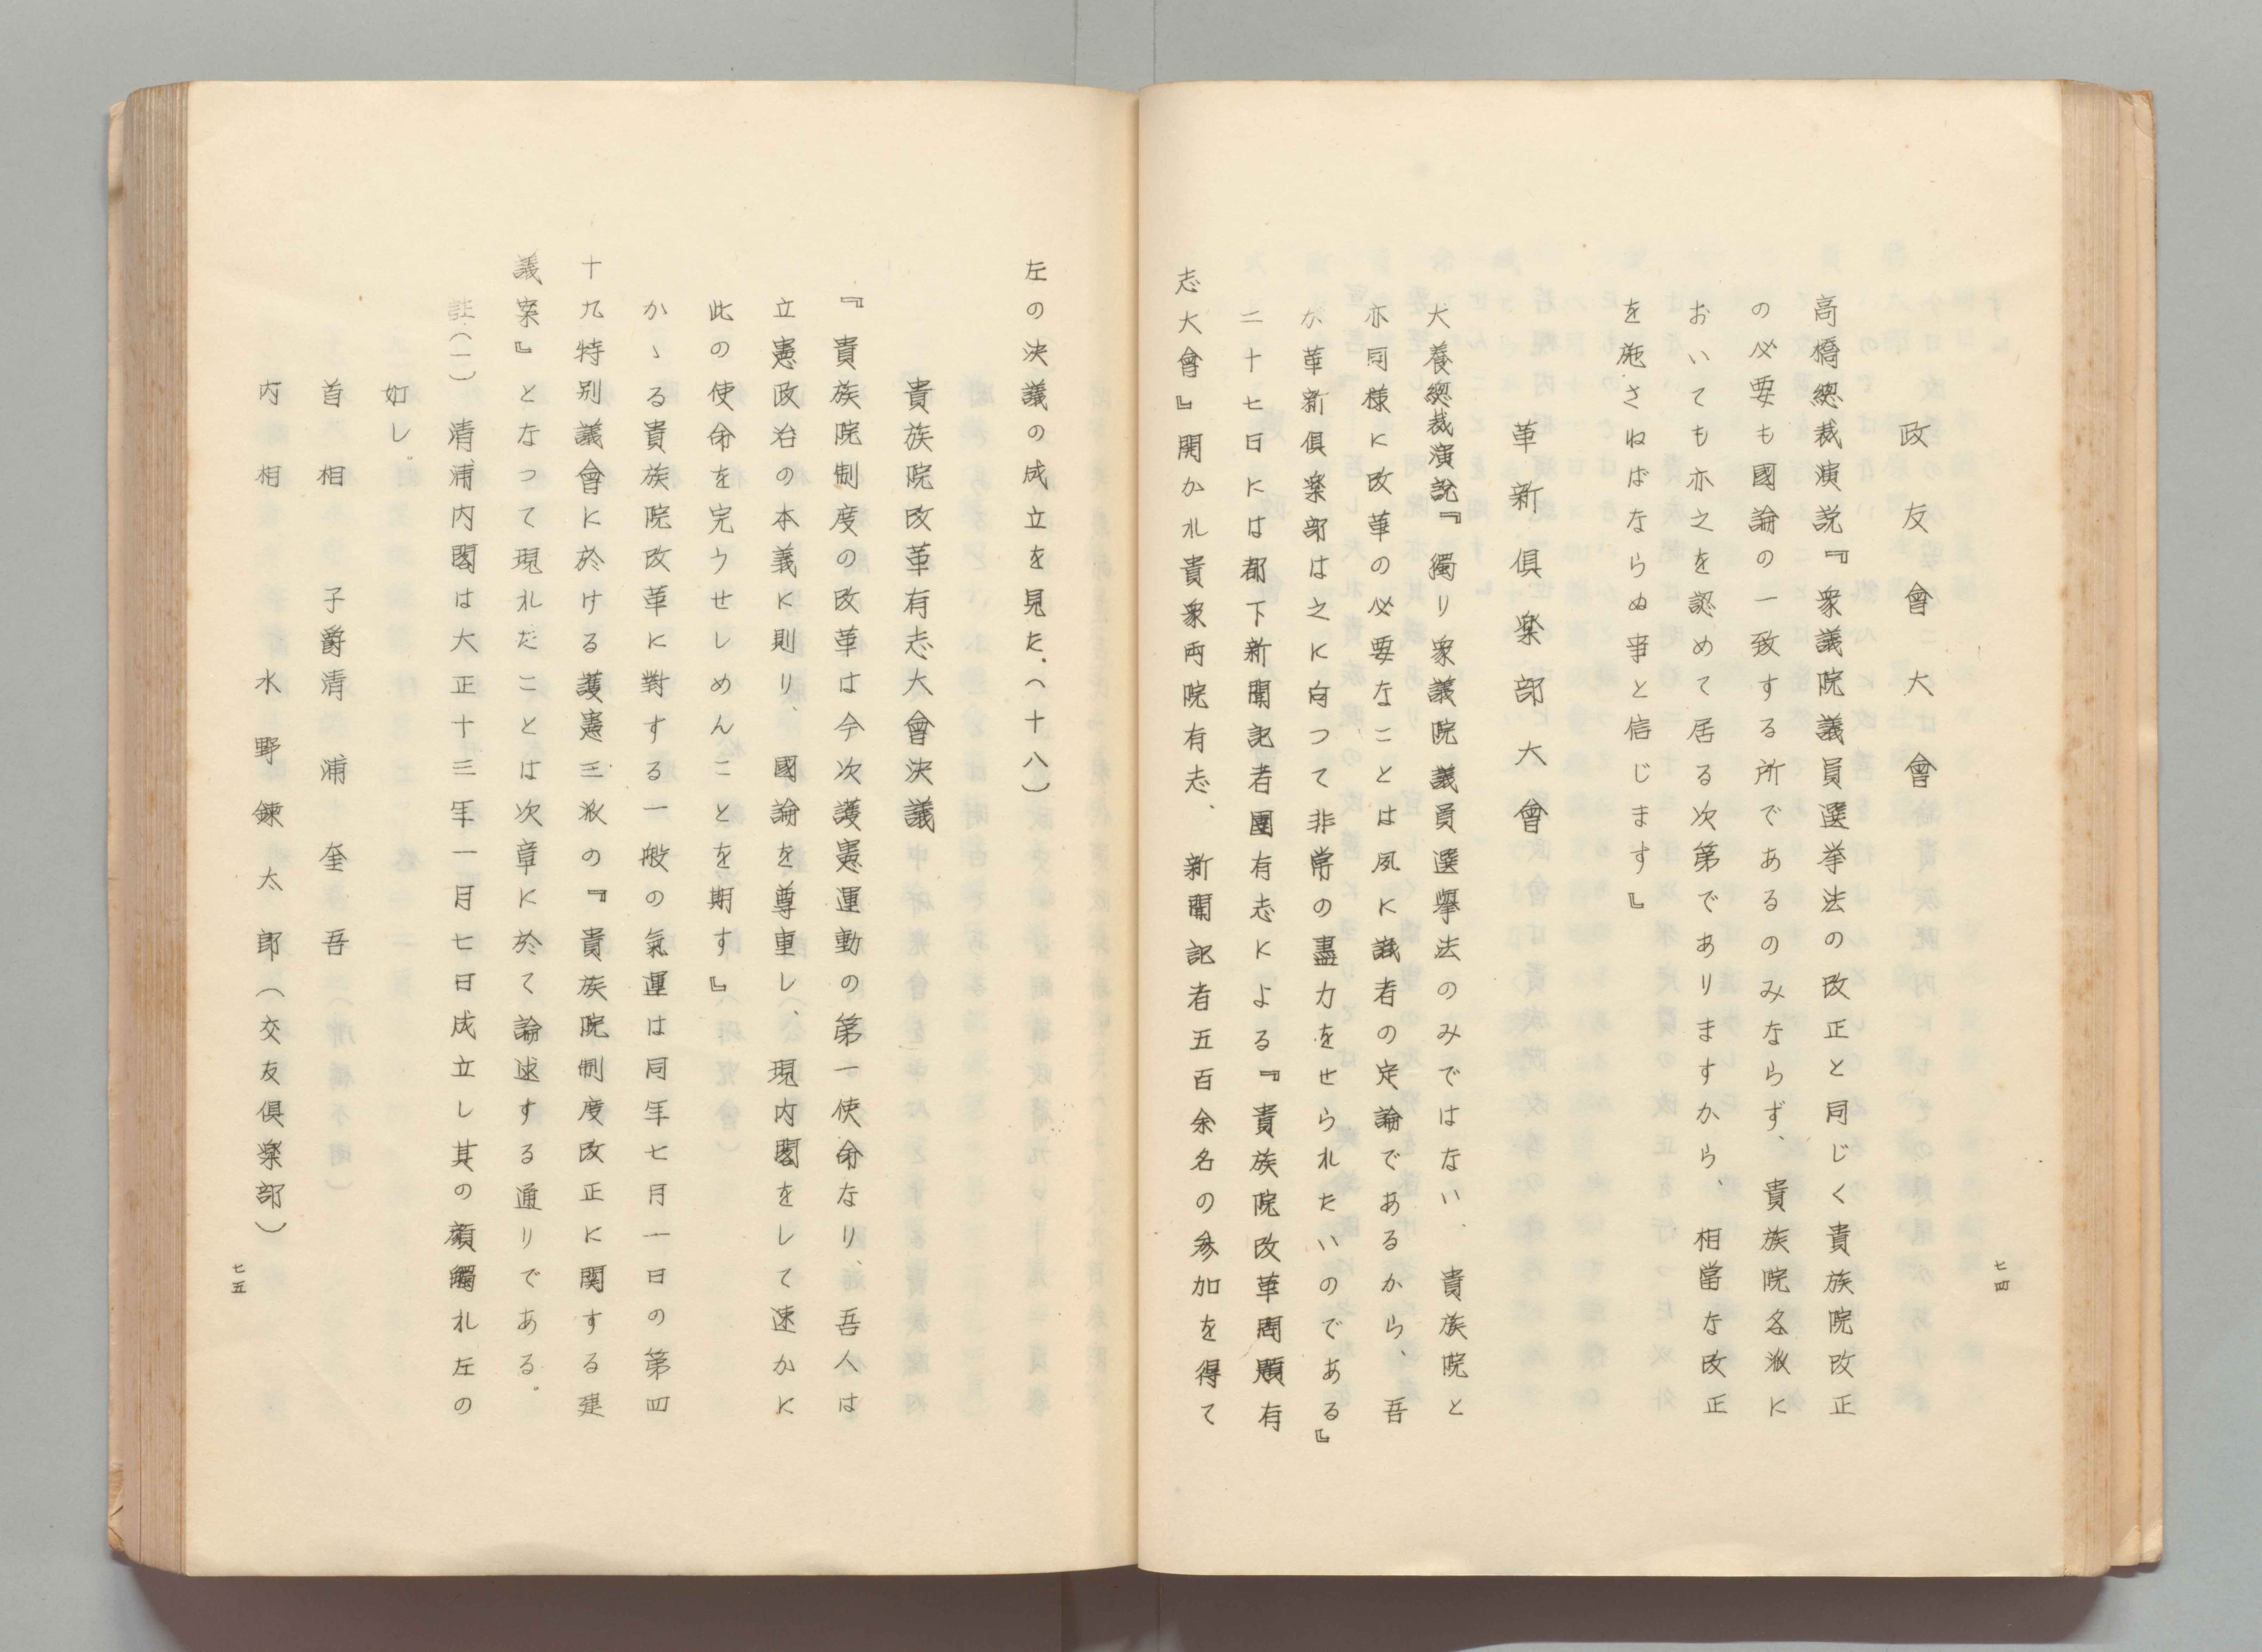 政友會大會
高橋總裁演説『衆議院議員選挙法の改正と同じく貴族院改正
の必要も國論の一致する所であるのみならず、貴族院各派に
おいても亦之を認めて居る次第でありますから、相當な改正
を施さねばならぬ事と信じます』
革新倶楽部大會
犬養總裁演説『獨り衆議院議員選擧法のみではない、貴族院と
亦同様に改革の必要なことは夙に識者の定論であるから、吾
が革新倶楽部は之に向つて非常の盡力をせられたいのである』
二十七日には都下新聞記者團有志による『貴族院改革問題有
志大會』開かれ貴衆両院有志、新聞記者五百余名の参加を得て
七四
左の決議の成立を見た、(十八)
貴族院改革有志大會決議
『貴族院制度の改革は今次護憲運動の第一使命なり、吾人は
立憲政治の本義に則り、國論を尊重し、現内閣をして速かに
此の使命を完うせしめんことを期す』
かゝる貴族院改革に對する一般の氣運は同年七月一日の第四
十九特別議會に於ける護憲三派の『貴族院制度改正に関する建
議案』となつて現れたことは次章に於て論述する通りである。
註(一) 清浦内閣は大正十三年一月七日成立し其の顔觸れ左の
如し。
首相 子爵清浦奎吾
内相 水野錬太郎(交友倶楽部)
七五